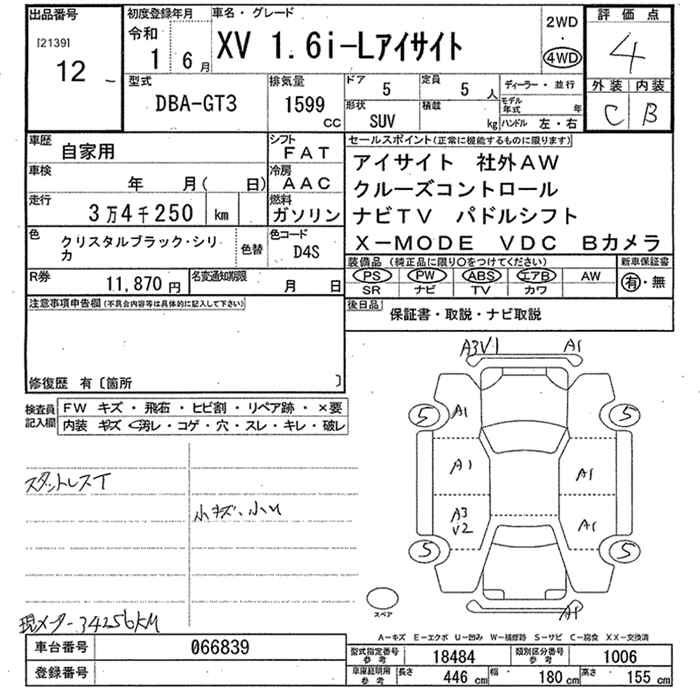 出品番号
[2139]
12
初度登録年月
令和
1 6月
車名・グレード
XV 1.6i-Lアイサイト
2WD
4WD
評価点
4
外装 内装
C B
型式
DBA-GT3
排気量
1599
cc
ドア
5
定員
5人
形状
SUV
積載
kg
ディーラー・並行
モデル年式 年
ハンドル 左・右
車歴
自家用
シフト
FAT
車検
年 月( 日)
冷房
AAC
走行
3万4千250 km
燃料
ガソリン
色
クリスタルブラック・シリカ
色替
色コード
D4S
R券
11,870円
名変通知期限
月 日
セールスポイント(正常に機能するものに限ります)
アイサイト 社外AW
クルーズコントロール
ナビTV パドルシフト
X-MODE VDC Bカメラ
装備品(純正品に限り○をつけてください)
PS PW ABS エアB AW
SR ナビ TV カワ
新車保証書
有・無
後日品
保証書・取説・ナビ取説
注意事項申告欄(不具合内容等は具体的に記入して下さい)
修復歴 有〔箇所 〕
検査員記入欄
FW キズ・飛石・ヒビ割・リペア跡・×要
内装 キズ 汚レ・コゲ・穴・スレ・キレ・破レ
スタットレスT
小キズ、小U
現メーター34256KM
A3V1 A1
5 A1 5
A1 A1
A3
V2 A1
5 5
A1
スペア
A-キズ E-エクボ U-凹み W-補修跡 S-サビ C-腐食 XX-交換済
車台番号
066839
登録番号
型式指定番号
参考
18484
類別区分番号
参考
1006
車庫証明用
参考
長さ
446 cm
幅
180 cm
高さ
155 cm